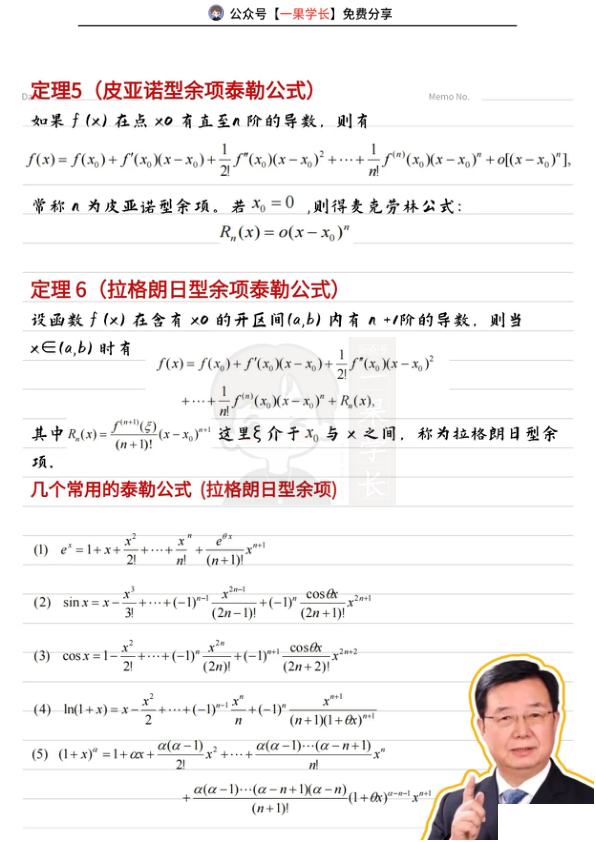 公众号【一果学长】免费分享
定理5（皮亚诺型余项泰勒公式）
Memo No.
如果 f (x) 在点 x0 有直至n 阶的导数，则有
f(x) = f(x₀) + f′(x₀)(x − x₀) + \frac{1}{2!} f″(x₀)(x − x₀)² + ⋯ + \frac{1}{n!} f⁽ⁿ⁾(x₀)(x − x₀)ⁿ + o[(x − x₀)ⁿ],
常称 n 为皮亚诺型余项。若 x₀ = 0 ,则得麦克劳林公式：
Rₙ(x) = o(x − x₀)ⁿ
定理 6（拉格朗日型余项泰勒公式）
设函数 f (x) 在含有 x0 的开区间(a,b) 内有 n +1阶的导数，则当
x∈(a,b) 时有
f(x) = f(x₀) + f′(x₀)(x − x₀) + \frac{1}{2!} f″(x₀)(x − x₀)²
+ ⋯ + \frac{1}{n!} f⁽ⁿ⁾(x₀)(x − x₀)ⁿ + Rₙ(x),
其中 Rₙ(x) = \frac{f^{(n+1)}(ξ)}{(n+1)!}(x − x₀)ⁿ⁺¹ 这里ξ 介于 x₀ 与 x 之间，称为拉格朗日型余
项.
几个常用的泰勒公式 (拉格朗日型余项)
(1) eˣ = 1 + x + \frac{x²}{2!} + ⋯ + \frac{xⁿ}{n!} + \frac{e^{θx}}{(n+1)!} xⁿ⁺¹
(2) sin x = x − \frac{x³}{3!} + ⋯ + (−1)ⁿ⁻¹ \frac{x^{2n−1}}{(2n−1)!} + (−1)ⁿ \frac{cosθx}{(2n+1)!} x^{2n+1}
(3) cos x = 1 − \frac{x²}{2!} + ⋯ + (−1)ⁿ \frac{x^{2n}}{(2n)!} + (−1)ⁿ⁺¹ \frac{cosθx}{(2n+2)!} x^{2n+2}
(4) ln(1 + x) = x − \frac{x²}{2} + ⋯ + (−1)ⁿ⁻¹ \frac{xⁿ}{n} + (−1)ⁿ \frac{x^{n+1}}{(n+1)(1+θx)^{n+1}}
(5) (1 + x)^α = 1 + αx + \frac{α(α−1)}{2!} x² + ⋯ + \frac{α(α−1)⋯(α−n+1)}{n!} xⁿ
+ \frac{α(α−1)⋯(α−n+1)(α−n)}{(n+1)!}(1+θx)^{α−n−1} xⁿ⁺¹